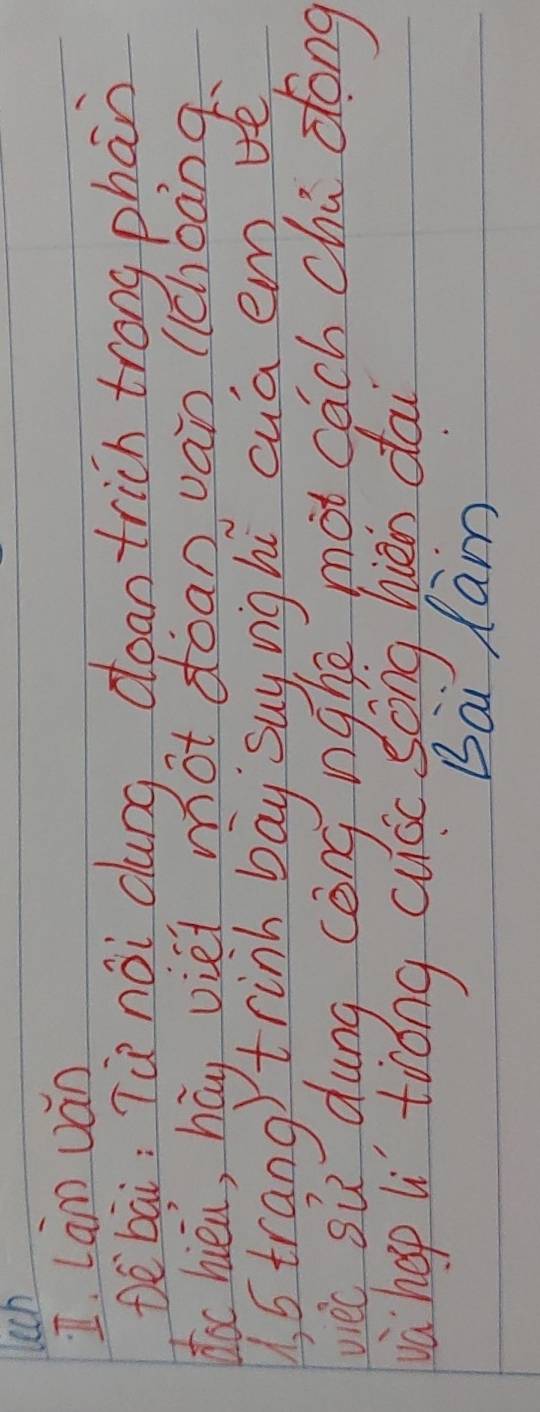 lịch
II. Làm văn
Đề bài: Từ nội dung đoạn trích trong phần
đọc hiểu, hãy viết một đoạn văn (khoảng
1,5 trang) trình bày suy nghĩ của em về
việc sử dụng công nghệ một cách chủ động
và hợp lí trong cuộc sống hiện đại
Bài làm